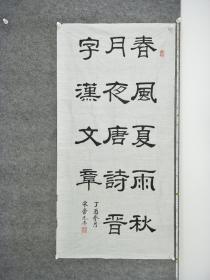 春風夏雨秋
月夜唐詩晉
字漢文章
丁酉冬月